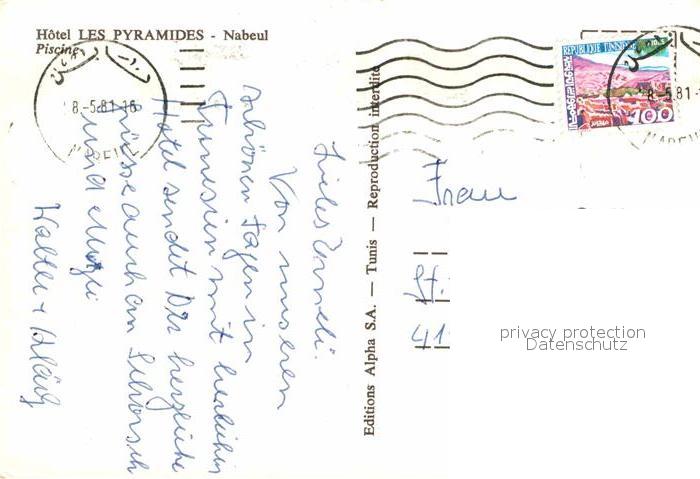 Hôtel LES PYRAMIDES - Nabeul
Piscine
8.-5.81-16
NABEUL
REPUBLIQUE TUNISIENNE
100
8.-5.81-1
NABEUL
Editions Alpha S.A. — Tunis — Reproduction interdite
Liebes
Von unseren
schönen Tagen in
Tunesien mit herrlichem
Hotel sendet Dir herzliche
Grüsse auch an Schorsch
und
Walter +
Frau
St.
41
privacy protection
Datenschutz